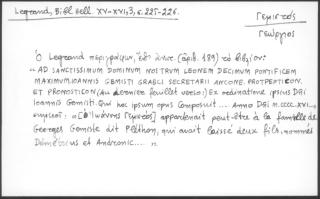 Legrand, Bibl. hell. XV-XVI, 3, σ. 225-226.
Γεμιστός
Γεώργιος
Ὁ Legrand περιγράφων, (ἀριθ. 189) τὸ βιβλίον:
"AD SANCTISSIMUM DOMINUM NOSTRUM LEONEM DECIMUM PONTIFICEM
MAXIMUM, IOANNIS GEMISTI GRAECI SECRETARII ANCONE. PROTREPTICON.
ET PRONOSTICON (Au dernier feuillet verso:) Ex ordinatione ipsius Dñi
Ioannis Gemisti. Qui hoc ipsum opus Composuit... Anno Dñi M.CCCC.XVI...
σημειοῖ: «[ὁ Ἰωάννης Γεμιστός] appartenait peut-être à la famille de
Georges Gemiste dit Pléthon, qui avait laissé deux fils, nommés
Démétrius et Andronic....».